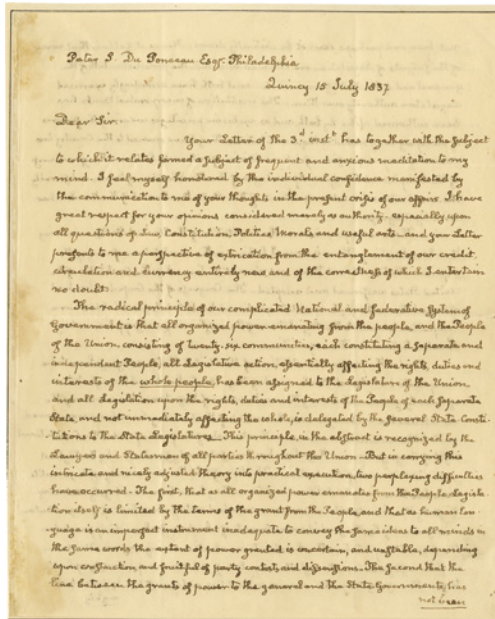 Peter S. Du Ponceau Esqr. Philadelphia
Quincy 15 July 1837
Dear Sir.
Your Letter of the 3d. instt. has together with the subject
to which it relates formed a subject of frequent and anxious meditation to my
mind. I feel myself honoured by the individual confidence manifested by
the communication to me of your thoughts in the present crisis of our affairs. I have
great respect for your opinions considered merely as authority, especially upon
all questions of Law, Constitution, Politics, Morals and useful arts—and your Letter
presents to me a perspective of extrication from the entanglement of our credit
circulation and currency entirely new and of the correctness of which I entertain
no doubt.
The radical principle of our complicated National and federative System of
Government is that all organized power emanating from the people, and the People
of the Union, consisting of twenty-six communities, each constituting a separate and
independent People, all Legislative action, essentially affecting the rights, duties and
interests of the whole people, has been assigned to the Legislature of the Union,
and all legislation upon the rights, duties and interests of the People of each separate
State, and not immediately affecting the whole, is delegated by the several State Consti-
tutions to the State Legislatures—This principle, in the abstract is recognized by the
Lawyers and Statesmen of all parties throughout this Union—But in carrying this
intricate and nicely adjusted theory into practical execution, two perplexing difficulties
have occurred—The first, that as all organized power emanates from the People, Legisla-
tion itself is limited by the terms of the grant from the People, and that as human lan-
guage is an imperfect instrument inadequate to convey the same ideas to all minds in
the same words the extent of power granted is uncertain, and unstable, depending
upon construction and fruitful of party contests and dissensions—The second that the
line between the grants of power to the general and the State Governments, has
not been